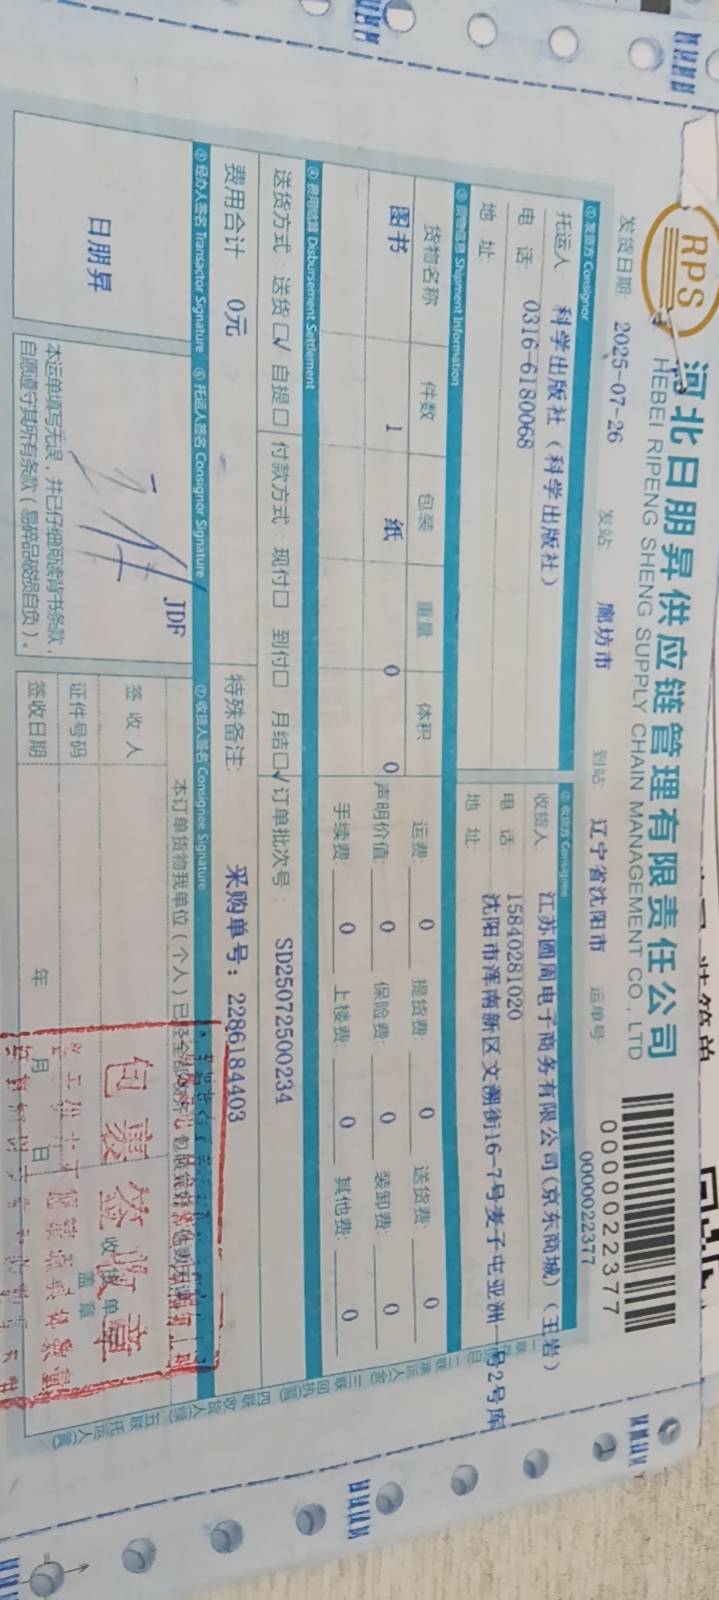 RPS
河北日朋昇供应链管理有限责任公司
HEBEI RIPENG SHENG SUPPLY CHAIN MANAGEMENT CO., LTD
0000022377
发货日期: 2025-07-26 发站: 廊坊市 到站: 辽宁省沈阳市 运单号: 0000022377
① 发货方 Consignor
托运人: 科学出版社（科学出版社）
电 话: 0316-6180068
地 址:
② 收货方 Consignee
收货人: 江苏圆周电子商务有限公司(京东商城)（王岩）
电 话: 15840281020
地 址: 沈阳市浑南新区文溯街16-7号麦子屯亚洲一号2号库
③ 货物信息 Shipment Information
货物名称 件数 包装 重量 体积
图书 1 纸 0 0
运费: 0 提货费: 0 送货费: 0
声明价值: 0 保险费: 0 装卸费: 0
手续费: 0 上楼费: 0 其他费: 0
④ 费用结算 Disbursement Settlement
送货方式: 送货口√ 自提口 付款方式: 现付口 到付口 月结口√ 订单批次号: SD25072500234
费用合计 0元 特殊备注: 采购单号: 2286184403
⑤ 经办人签名 Transactor Signature
日朋昇
⑥ 托运人签名 Consignor Signature
JDF
本运单填写无误，并已仔细阅读背书条款，
自愿遵守其所有条款（易碎品破损自负）。
⑦ 收货人签名 Consignee Signature
本订单货物我单位（个人）已经全部收齐
签 收 人
证件号码
签收日期 年 月 日
收 单
盖 章
包裹签收章